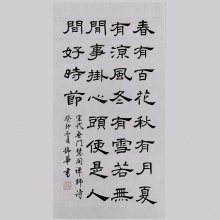 春有百花秋有月夏
有涼風冬有雪若無
閒事掛心頭便是人
間好時節
宋代无门慧開禪師诗
書